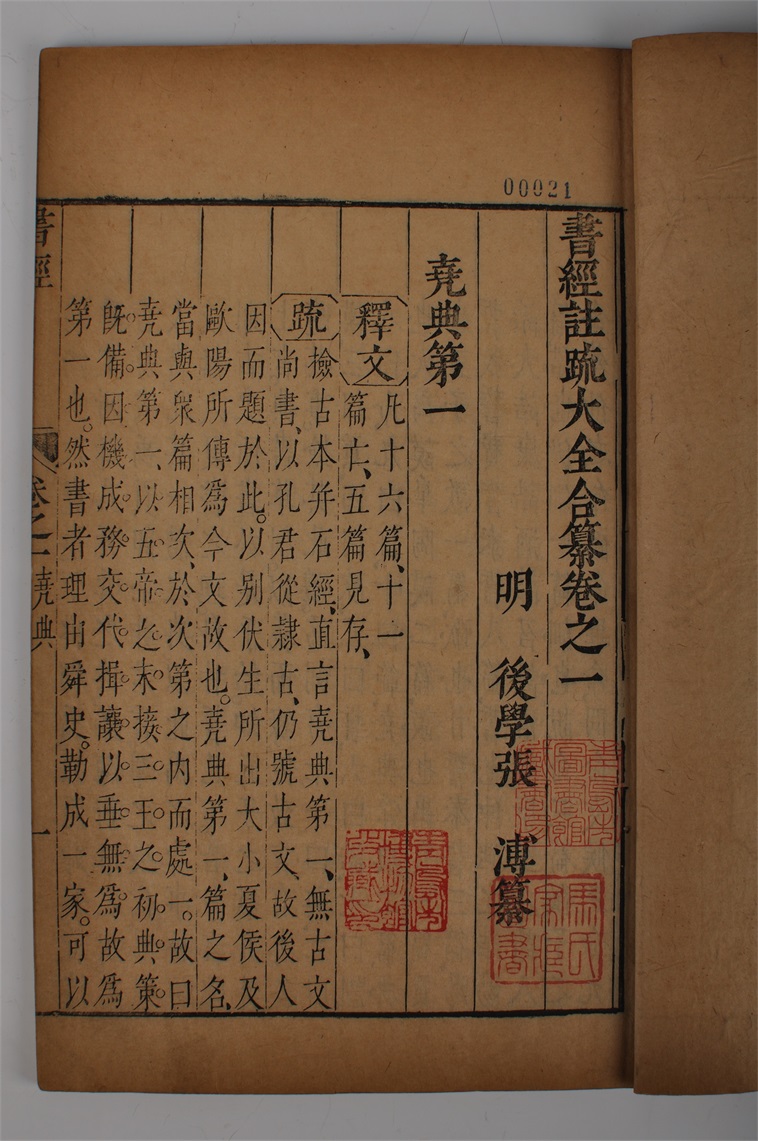 00021
書經註疏大全合纂卷之一
明 後學張 溥纂
堯典第一
釋文 凡十六篇、十一
篇亡、五篇見存、
疏 撿古本并石經、直言堯典第一、無古文
尚書、以孔君從隸古、仍號古文、故後人
因而題於此。以别伏生所出大小夏侯及
歐陽所傳爲今文故也。堯典第一、篇之名、
當與衆篇相次、於次第之内而處一。故曰
堯典第一、以五帝之末接三王之初典策
既備。因機成務交代揖讓以垂無爲故爲
第一也。然書者理由舜史。勒成一家。可以
書經 卷之一 堯典 一